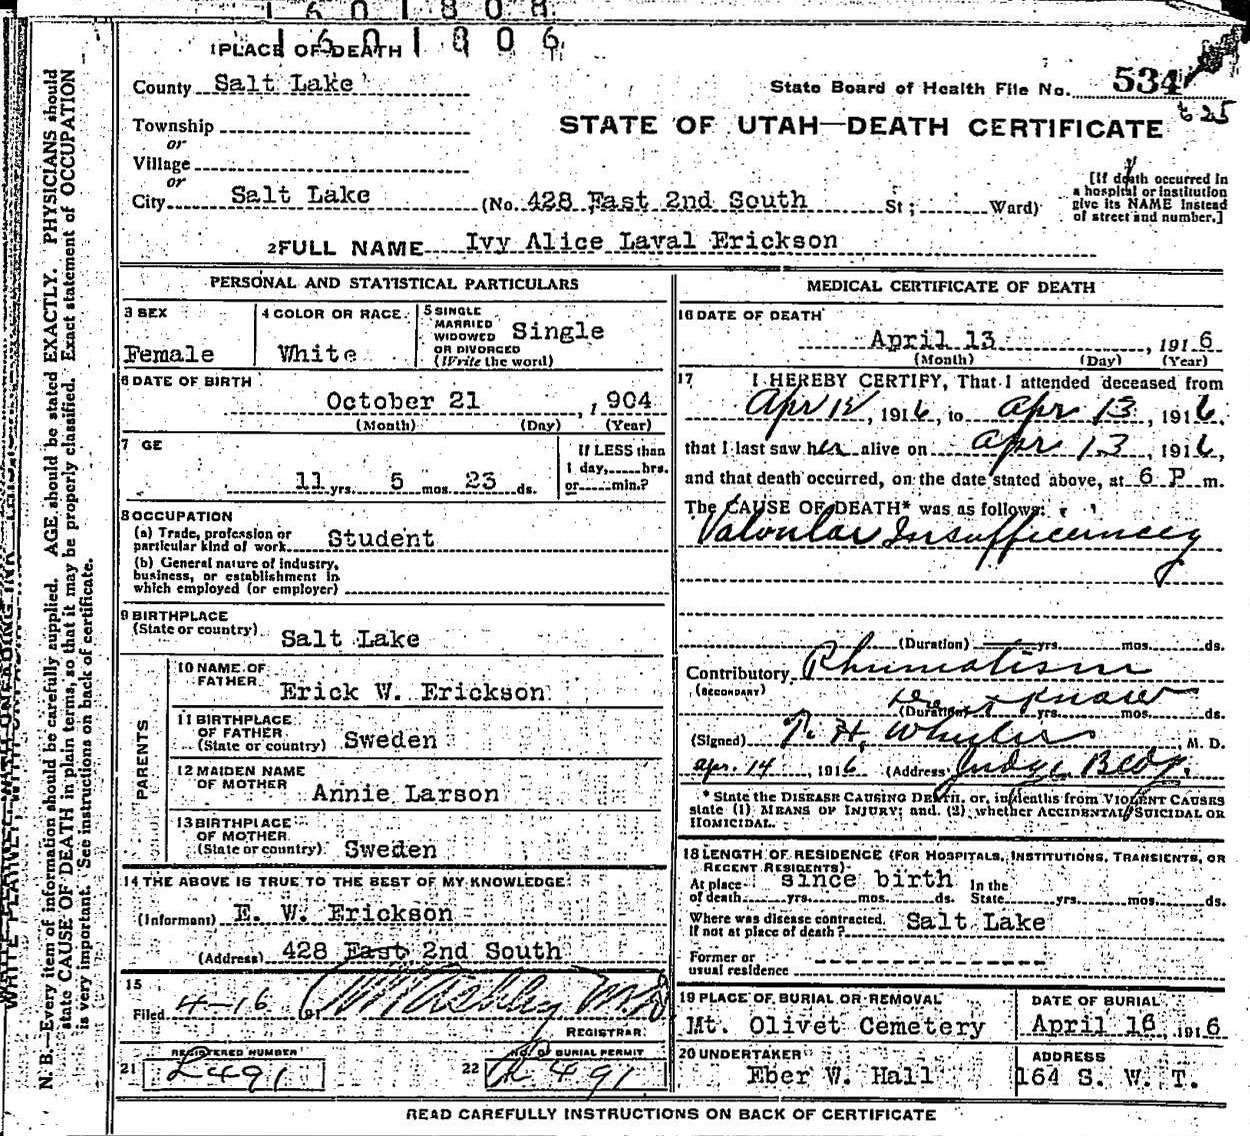 1601808
1601806
1 PLACE OF DEATH
County Salt Lake
State Board of Health File No. 534
625
Township
STATE OF UTAH—DEATH CERTIFICATE
or
Village
or
City Salt Lake (No. 428 East 2nd South St; Ward)
[If death occurred in a hospital or institution give its NAME instead of street and number.]
2 FULL NAME Ivy Alice Laval Erickson
PERSONAL AND STATISTICAL PARTICULARS
3 SEX
Female
4 COLOR OR RACE
White
5 SINGLE MARRIED WIDOWED OR DIVORCED (Write the word) Single
6 DATE OF BIRTH
October 21, 1904
(Month) (Day) (Year)
7 GE
11 yrs. 5 mos. 23 ds.
If LESS than 1 day, hrs. or min.?
8 OCCUPATION
(a) Trade, profession or particular kind of work Student
(b) General nature of industry, business, or establishment in which employed (or employer)
9 BIRTHPLACE
(State or country) Salt Lake
PARENTS
10 NAME OF FATHER Erick W. Erickson
11 BIRTHPLACE OF FATHER (State or country) Sweden
12 MAIDEN NAME OF MOTHER Annie Larson
13 BIRTHPLACE OF MOTHER (State or country) Sweden
14 THE ABOVE IS TRUE TO THE BEST OF MY KNOWLEDGE
(Informant) E. W. Erickson
(Address) 428 East 2nd South
15
Filed 4-16 191 M.D.
REGISTRAR
REGISTERED NUMBER
21 L491
NO. OF BURIAL PERMIT
22 491
MEDICAL CERTIFICATE OF DEATH
16 DATE OF DEATH
April 13, 1916
(Month) (Day) (Year)
17 I HEREBY CERTIFY, That I attended deceased from
Apr 12, 1916, to Apr 13, 1916,
that I last saw her alive on Apr 13, 1916,
and that death occurred, on the date stated above, at 6 P m.
The CAUSE OF DEATH* was as follows:
Valvular Insufficiencey
(Duration) yrs. mos. ds.
Contributory Rhumatism
(SECONDARY)
Don't Know
(Duration) yrs. mos. ds.
(Signed) Wheeler M. D.
Apr. 14, 1916 (Address) Judge Bldg.
* State the DISEASE CAUSING DEATH, or, in deaths from VIOLENT CAUSES
state (1) MEANS OF INJURY; and (2) whether ACCIDENTAL, SUICIDAL OR
HOMICIDAL.
18 LENGTH OF RESIDENCE (FOR HOSPITALS, INSTITUTIONS, TRANSIENTS, OR
RECENT RESIDENTS)
At place of death since birth yrs. mos. ds. In the State yrs. mos. ds.
Where was disease contracted, If not at place of death? Salt Lake
Former or usual residence
19 PLACE OF BURIAL OR REMOVAL
Mt. Olivet Cemetery
DATE OF BURIAL
April 16, 1916
20 UNDERTAKER
Eber W. Hall
ADDRESS
164 S. W. T.
READ CAREFULLY INSTRUCTIONS ON BACK OF CERTIFICATE
N. B.—Every item of information should be carefully supplied. AGE should be stated EXACTLY. PHYSICIANS should
state CAUSE OF DEATH in plain terms, so that it may be properly classified. Exact statement of OCCUPATION
is very important. See instructions on back of certificate.